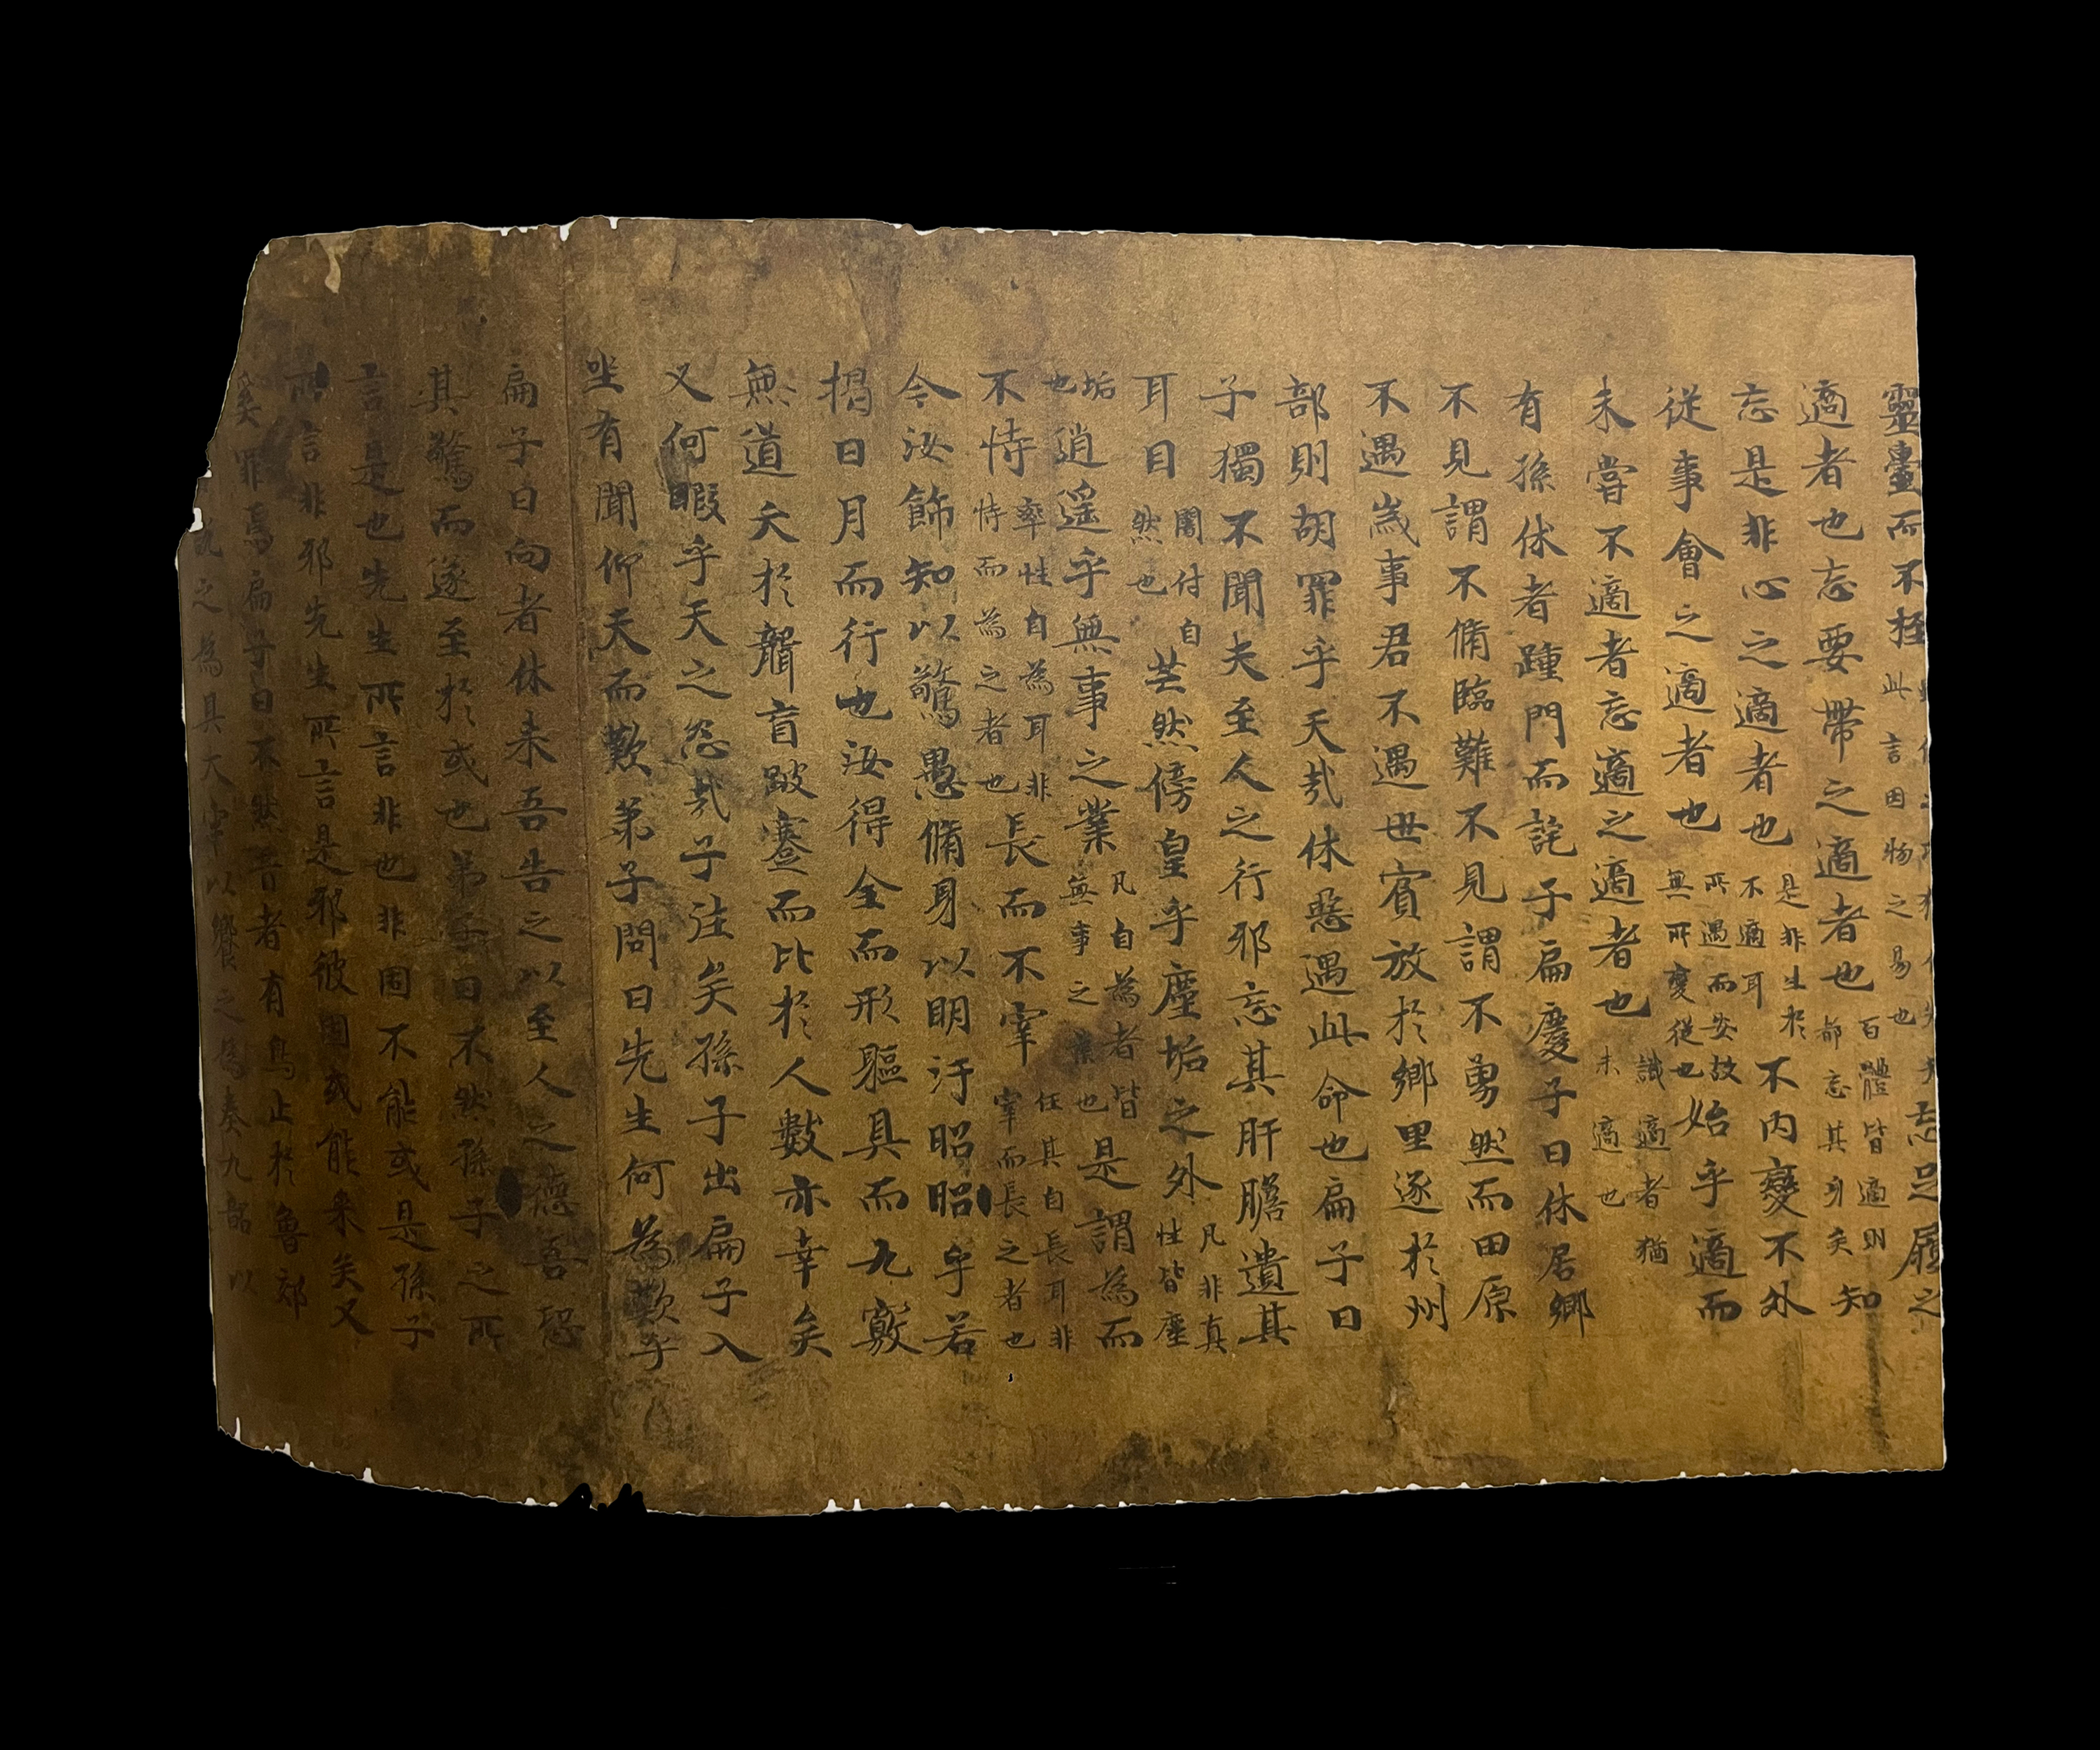 靈臺而不桎此言因物之易也忘足履之
適者也忘要帶之適者也百體皆適則都忘其身矣知
忘是非心之適者也是非生於不適耳不内變不外
從事會之適者也所遇而安故無所變從也始乎適而
未甞不適者忘適之適者也識適者猶未適也
有孫休者踵門而詫子扁慶子曰休居鄉
不見謂不脩臨難不見謂不勇然而田原
不遇歲事君不遇世賓放於鄉里逐於州
部則胡罪乎天哉休惡遇此命也扁子曰
子獨不聞夫至人之行邪忘其肝膽遺其
耳目闇付自然也芒然傍皇乎塵垢之外凡非真性皆塵
垢也逍遥乎無事之業凡自為者皆無事之業也是謂為而
不恃率性自為耳非恃而為之者也長而不宰任其自長耳非宰而長之者也
今汝飾知以驚愚脩身以明汙昭昭乎若
揭日月而行也汝得全而形軀具而九竅
無道夭於聾盲跛蹇而比於人數亦幸矣
又何暇乎天之怨哉子往矣孫子出扁子入
坐有聞仰天而歎弟子問曰先生何為歎乎
扁子曰向者休来吾告之以至人之德吾恐
其驚而遂至於或也弟子曰不然孫子之所
言是也先生所言非也非固不能或是孫子
所言非邪先生所言是邪彼固或能来矣又
奚罪焉扁子曰不然昔者有鳥止於魯郊
之為具大宰以饗之為奏九韶以